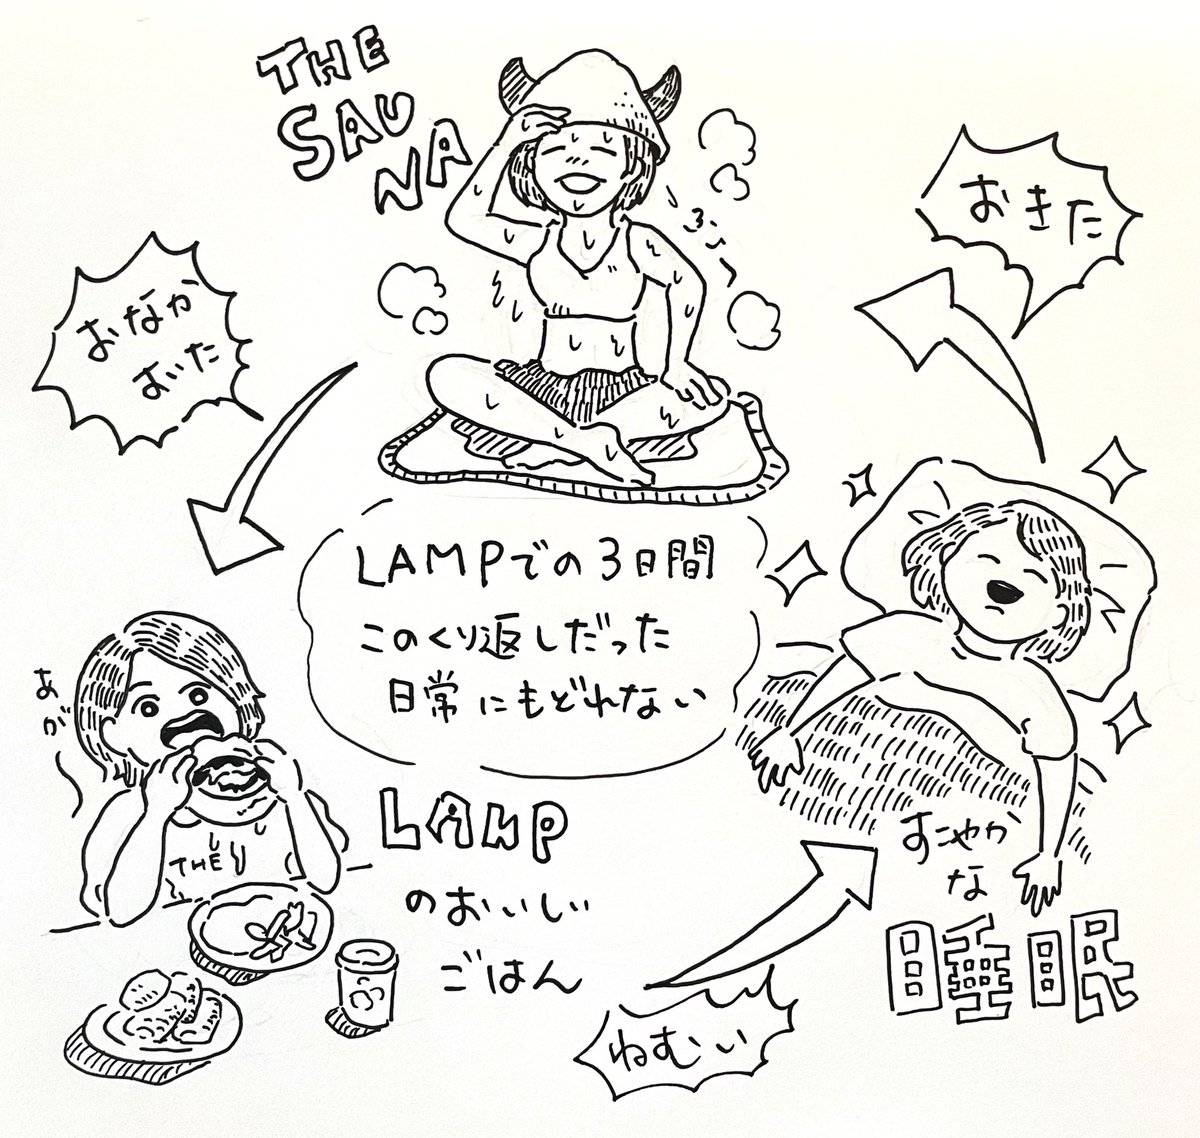 THE
SAU
NA
ふぅ〜
おきた
おなか
おいた
LAMPでの3日間
このくり返しだった
日常にもどれない
あが
THE
LAMP
のおいしい
ごはん
すこやか
な
睡眠
ねむい